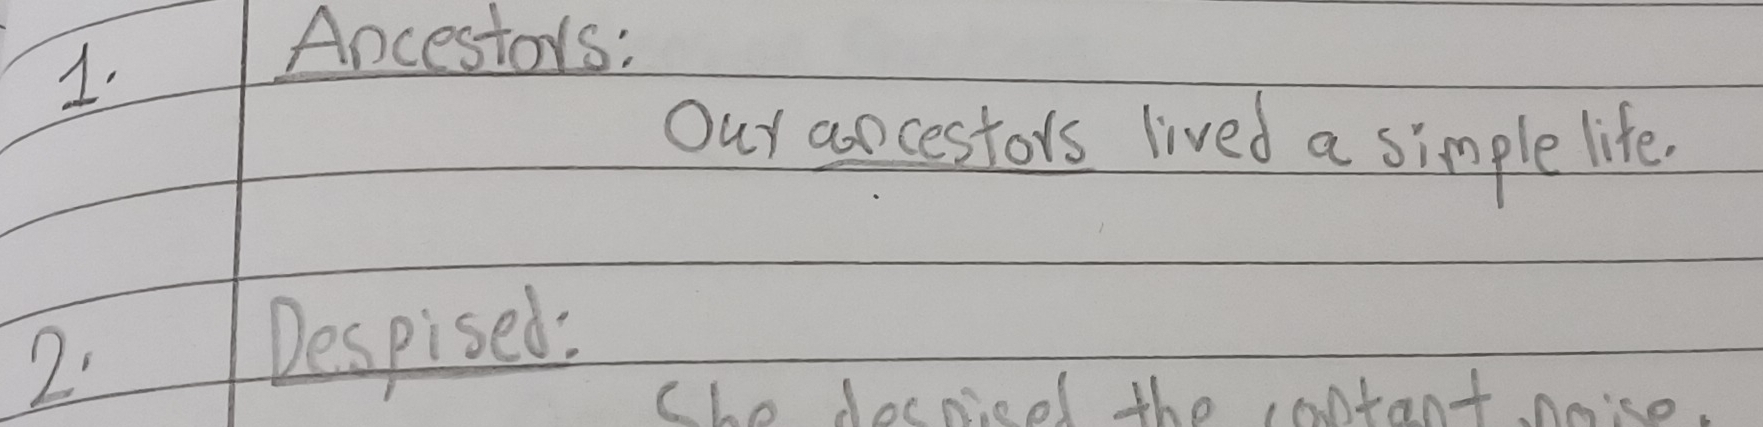 1. Ancestors:
Our ancestors lived a simple life.
2. Despised:
She despised the contant noise.